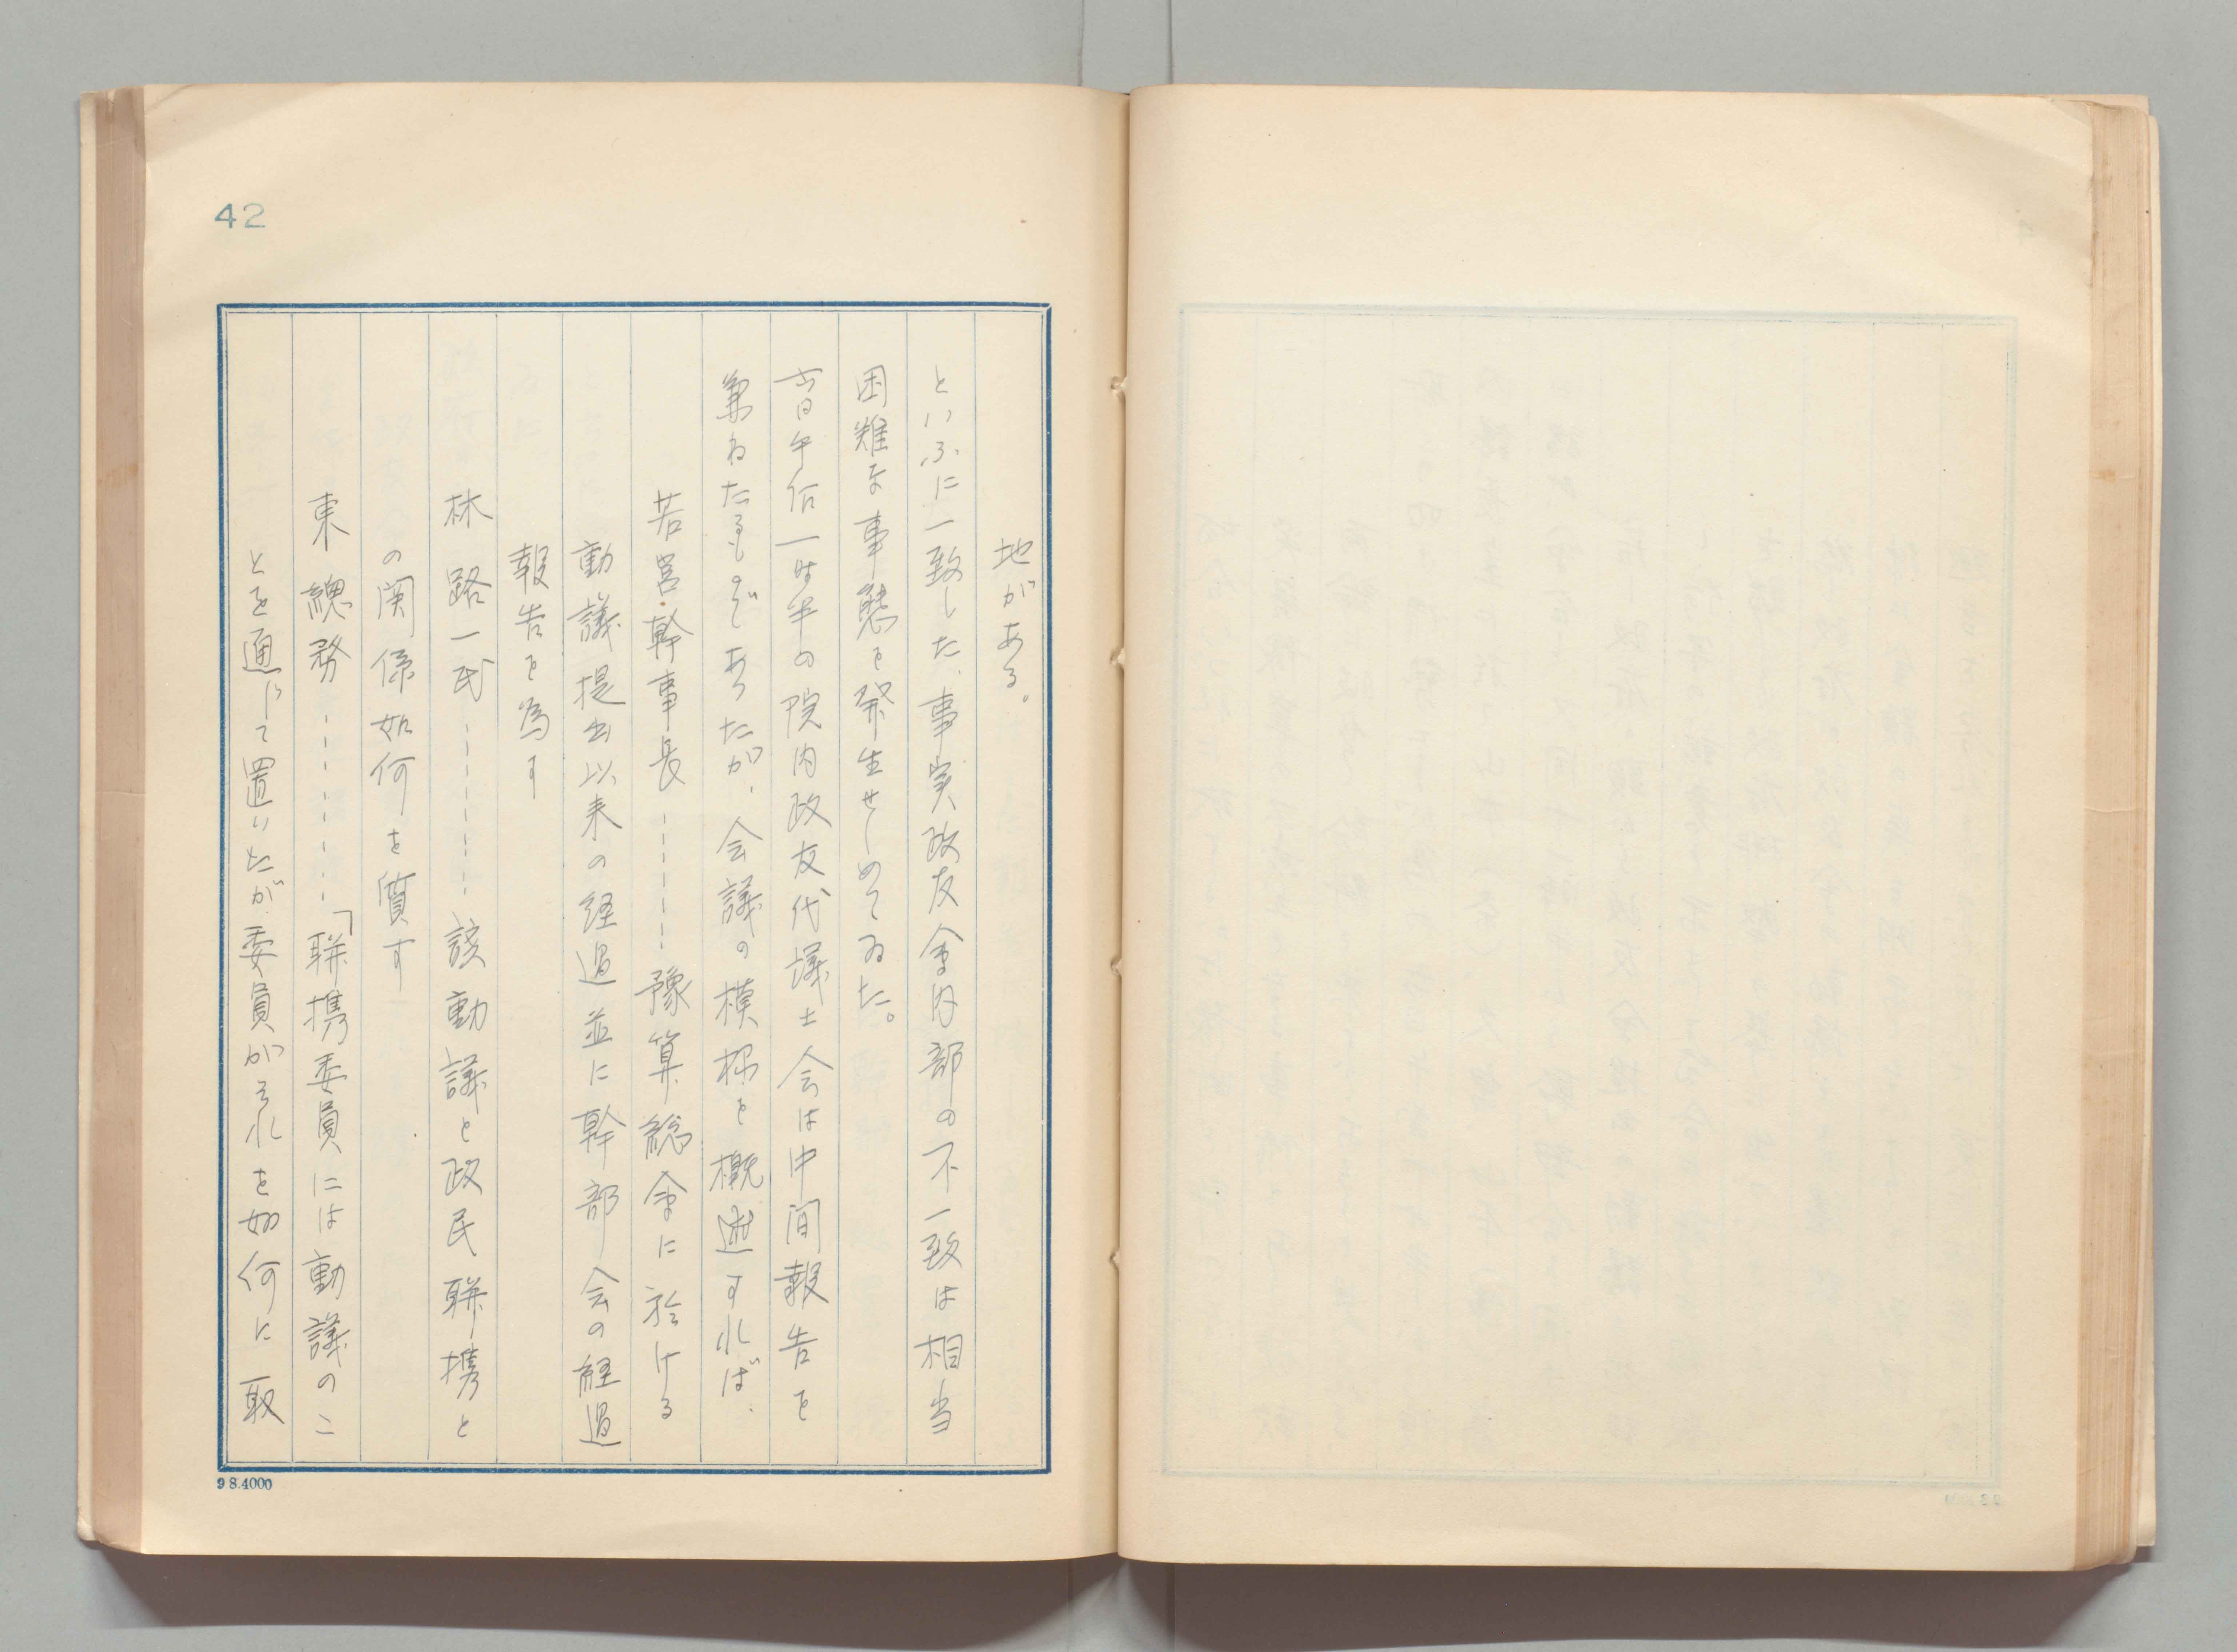 42
地がある。
といふに一致した、事実政友会内部の不一致は相当
困難な事態を発生せしめてゐた。
午后一時半の院内政友代議士会は中間報告を
兼ねたるものであつたが、会議の模様を概述すれば、
若宮幹事長…………豫算総会に於ける
動議提出以来の経過並に幹部会の経過
報告を為す
林路一氏…………該動議と政民聯携と
の関係如何を質す
東總務…………「聯携委員には動議のこ
とを通じて置いたが委員がそれを如何に取
9 8.4000